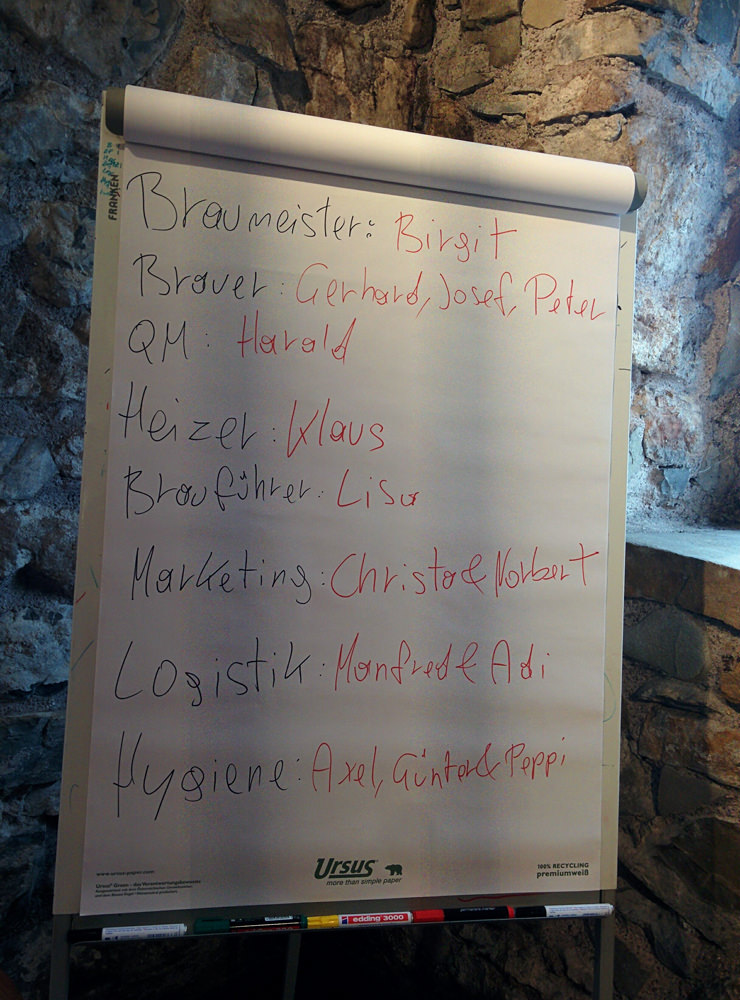 FRANKEN
Braumeister: Birgit
Brauer: Gerhard, Josef, Peter
QM: Harald
Heizer: Klaus
Brauführer: Lisa
Marketing: Christa & Norbert
Logistik: Manfred & Adi
Hygiene: Axel, Günter & Peppi
www.ursus-paper.com
Ursus
more than simple paper
100% RECYCLING
premiumweiß
edding 3000